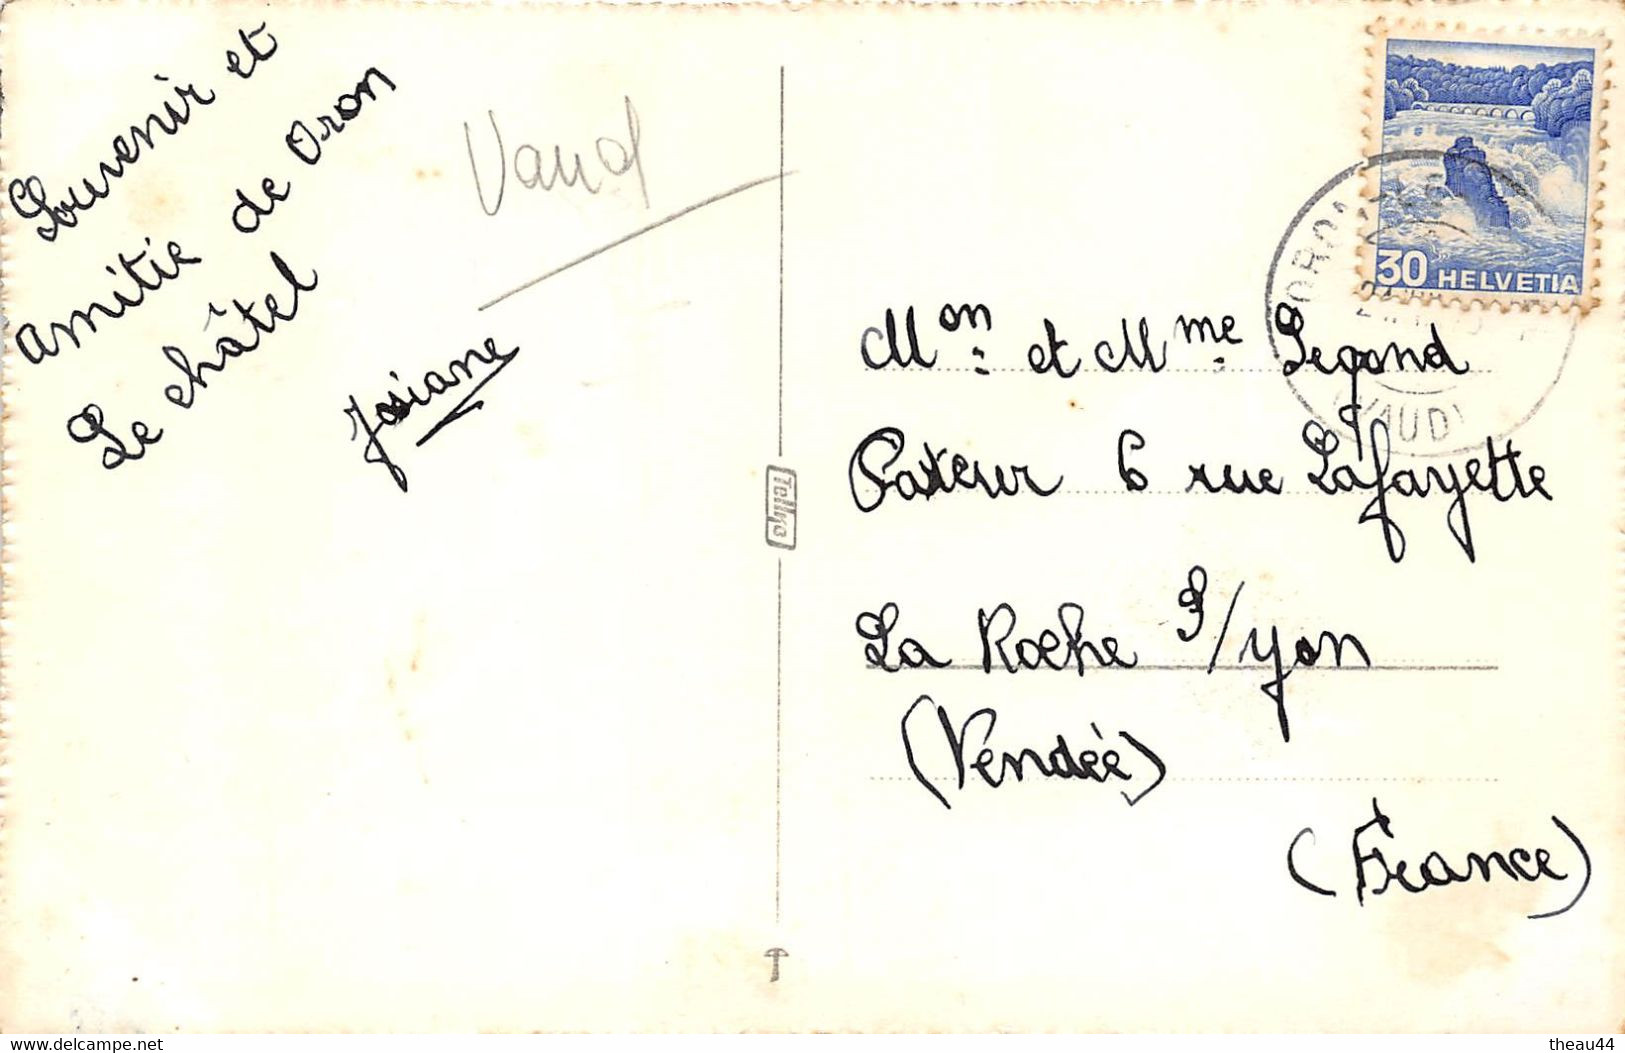 Souvenir et
amitié de Oron
Le châtel
Josiane
Vaud
Tellko
30 HELVETIA
ORON
(VAUD)
Mon et Mme Segond
Pasteur 6 rue Lafayette
La Roche S/yon
(Vendée)
(France)
www.delcampe.net
theau44